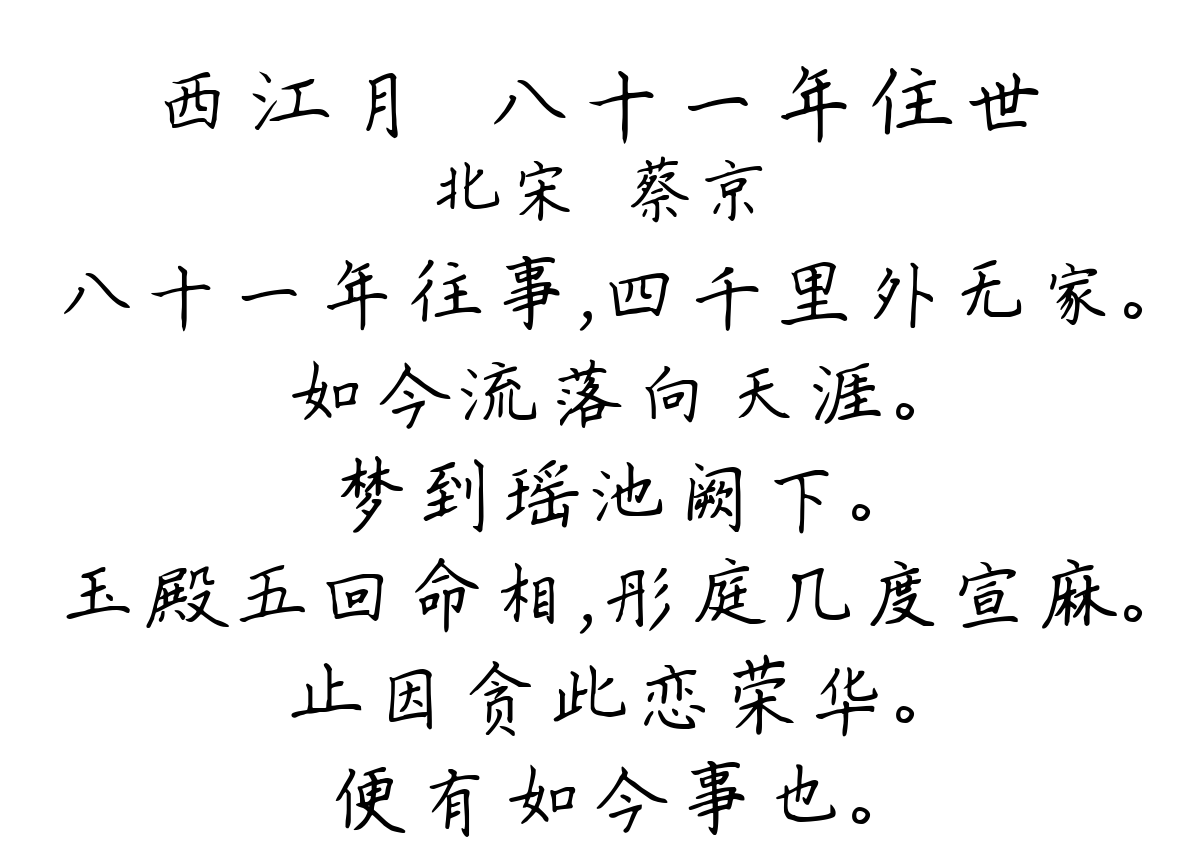 西江月 八十一年住世
北宋 蔡京
八十一年往事,四千里外无家。
如今流落向天涯。
梦到瑶池阙下。
玉殿五回命相,彤庭几度宣麻。
止因贪此恋荣华。
便有如今事也。